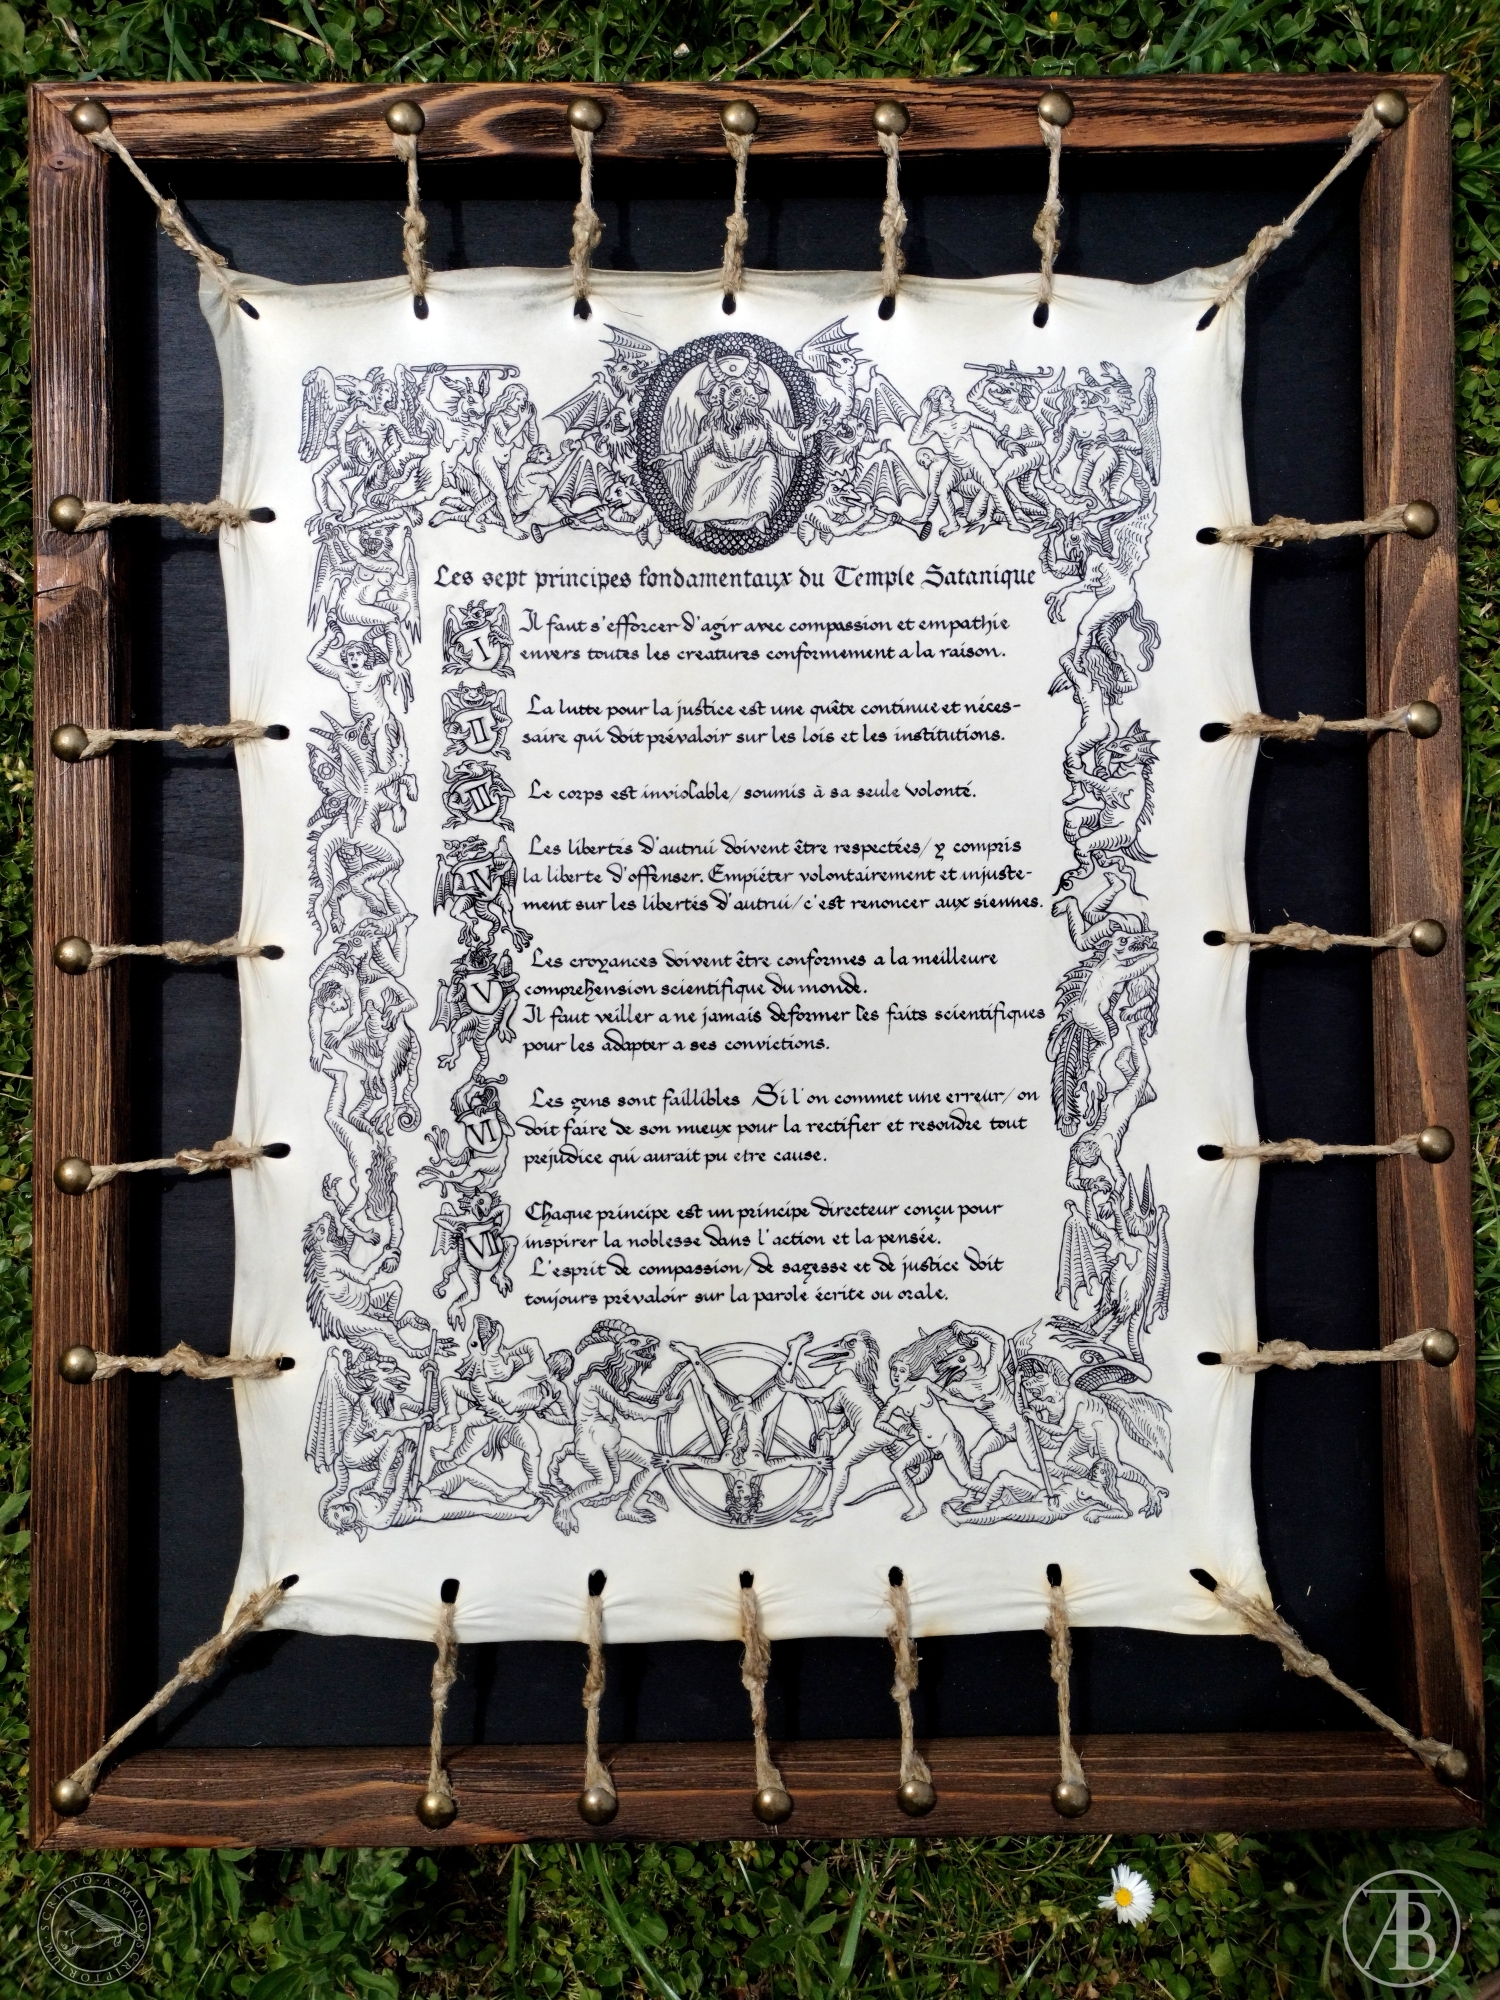 Les sept principes fondamentaux du Temple Satanique
I
Il faut s'efforcer d'agir avec compassion et empathie
envers toutes les creatures conformement a la raison.
II
La lutte pour la justice est une quête continue et néces-
saire qui doit prévaloir sur les lois et les institutions.
III
Le corps est inviolable/ soumis à sa seule volonté.
IV
Les libertés d'autrui doivent être respectées/ y compris
la liberte d'offenser. Empiéter volontairement et injuste-
ment sur les libertés d'autrui/ c'est renoncer aux siennes.
V
Les croyances doivent être conformes a la meilleure
comprehension scientifique du monde.
Il faut veiller a ne jamais deformer les faits scientifiques
pour les adapter a ses convictions.
VI
Les gens sont faillibles Si l'on commet une erreur/ on
doit faire de son mieux pour la rectifier et resoudre tout
prejudice qui aurait pu etre cause.
VII
Chaque principe est un principe directeur conçu pour
inspirer la noblesse dans l'action et la pensée.
L'esprit de compassion/ de sagesse et de justice doit
toujours prévaloir sur la parole écrite ou orale.
SCRITTO·A·MANO·SCRIPTORIUM
ATB